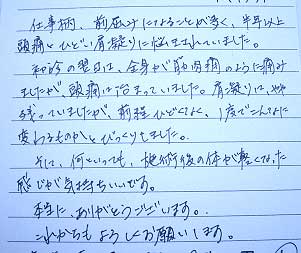 仕事柄、前屈みになることが多く、半年以上
頭痛とひどい肩凝りに悩まされていました。
初診の翌日は、全身が筋肉痛のように痛み
ましたが、頭痛は治まっていました。肩凝りは、やや
残っていましたが、前程ひどくなく、1度でこんなに
変わるものかとびっくりしました。
そして、何といっても、施術後の体が軽くなった
感じが気持ちいいです。
本当に、ありがとうございます。
これからもよろしくお願いします。